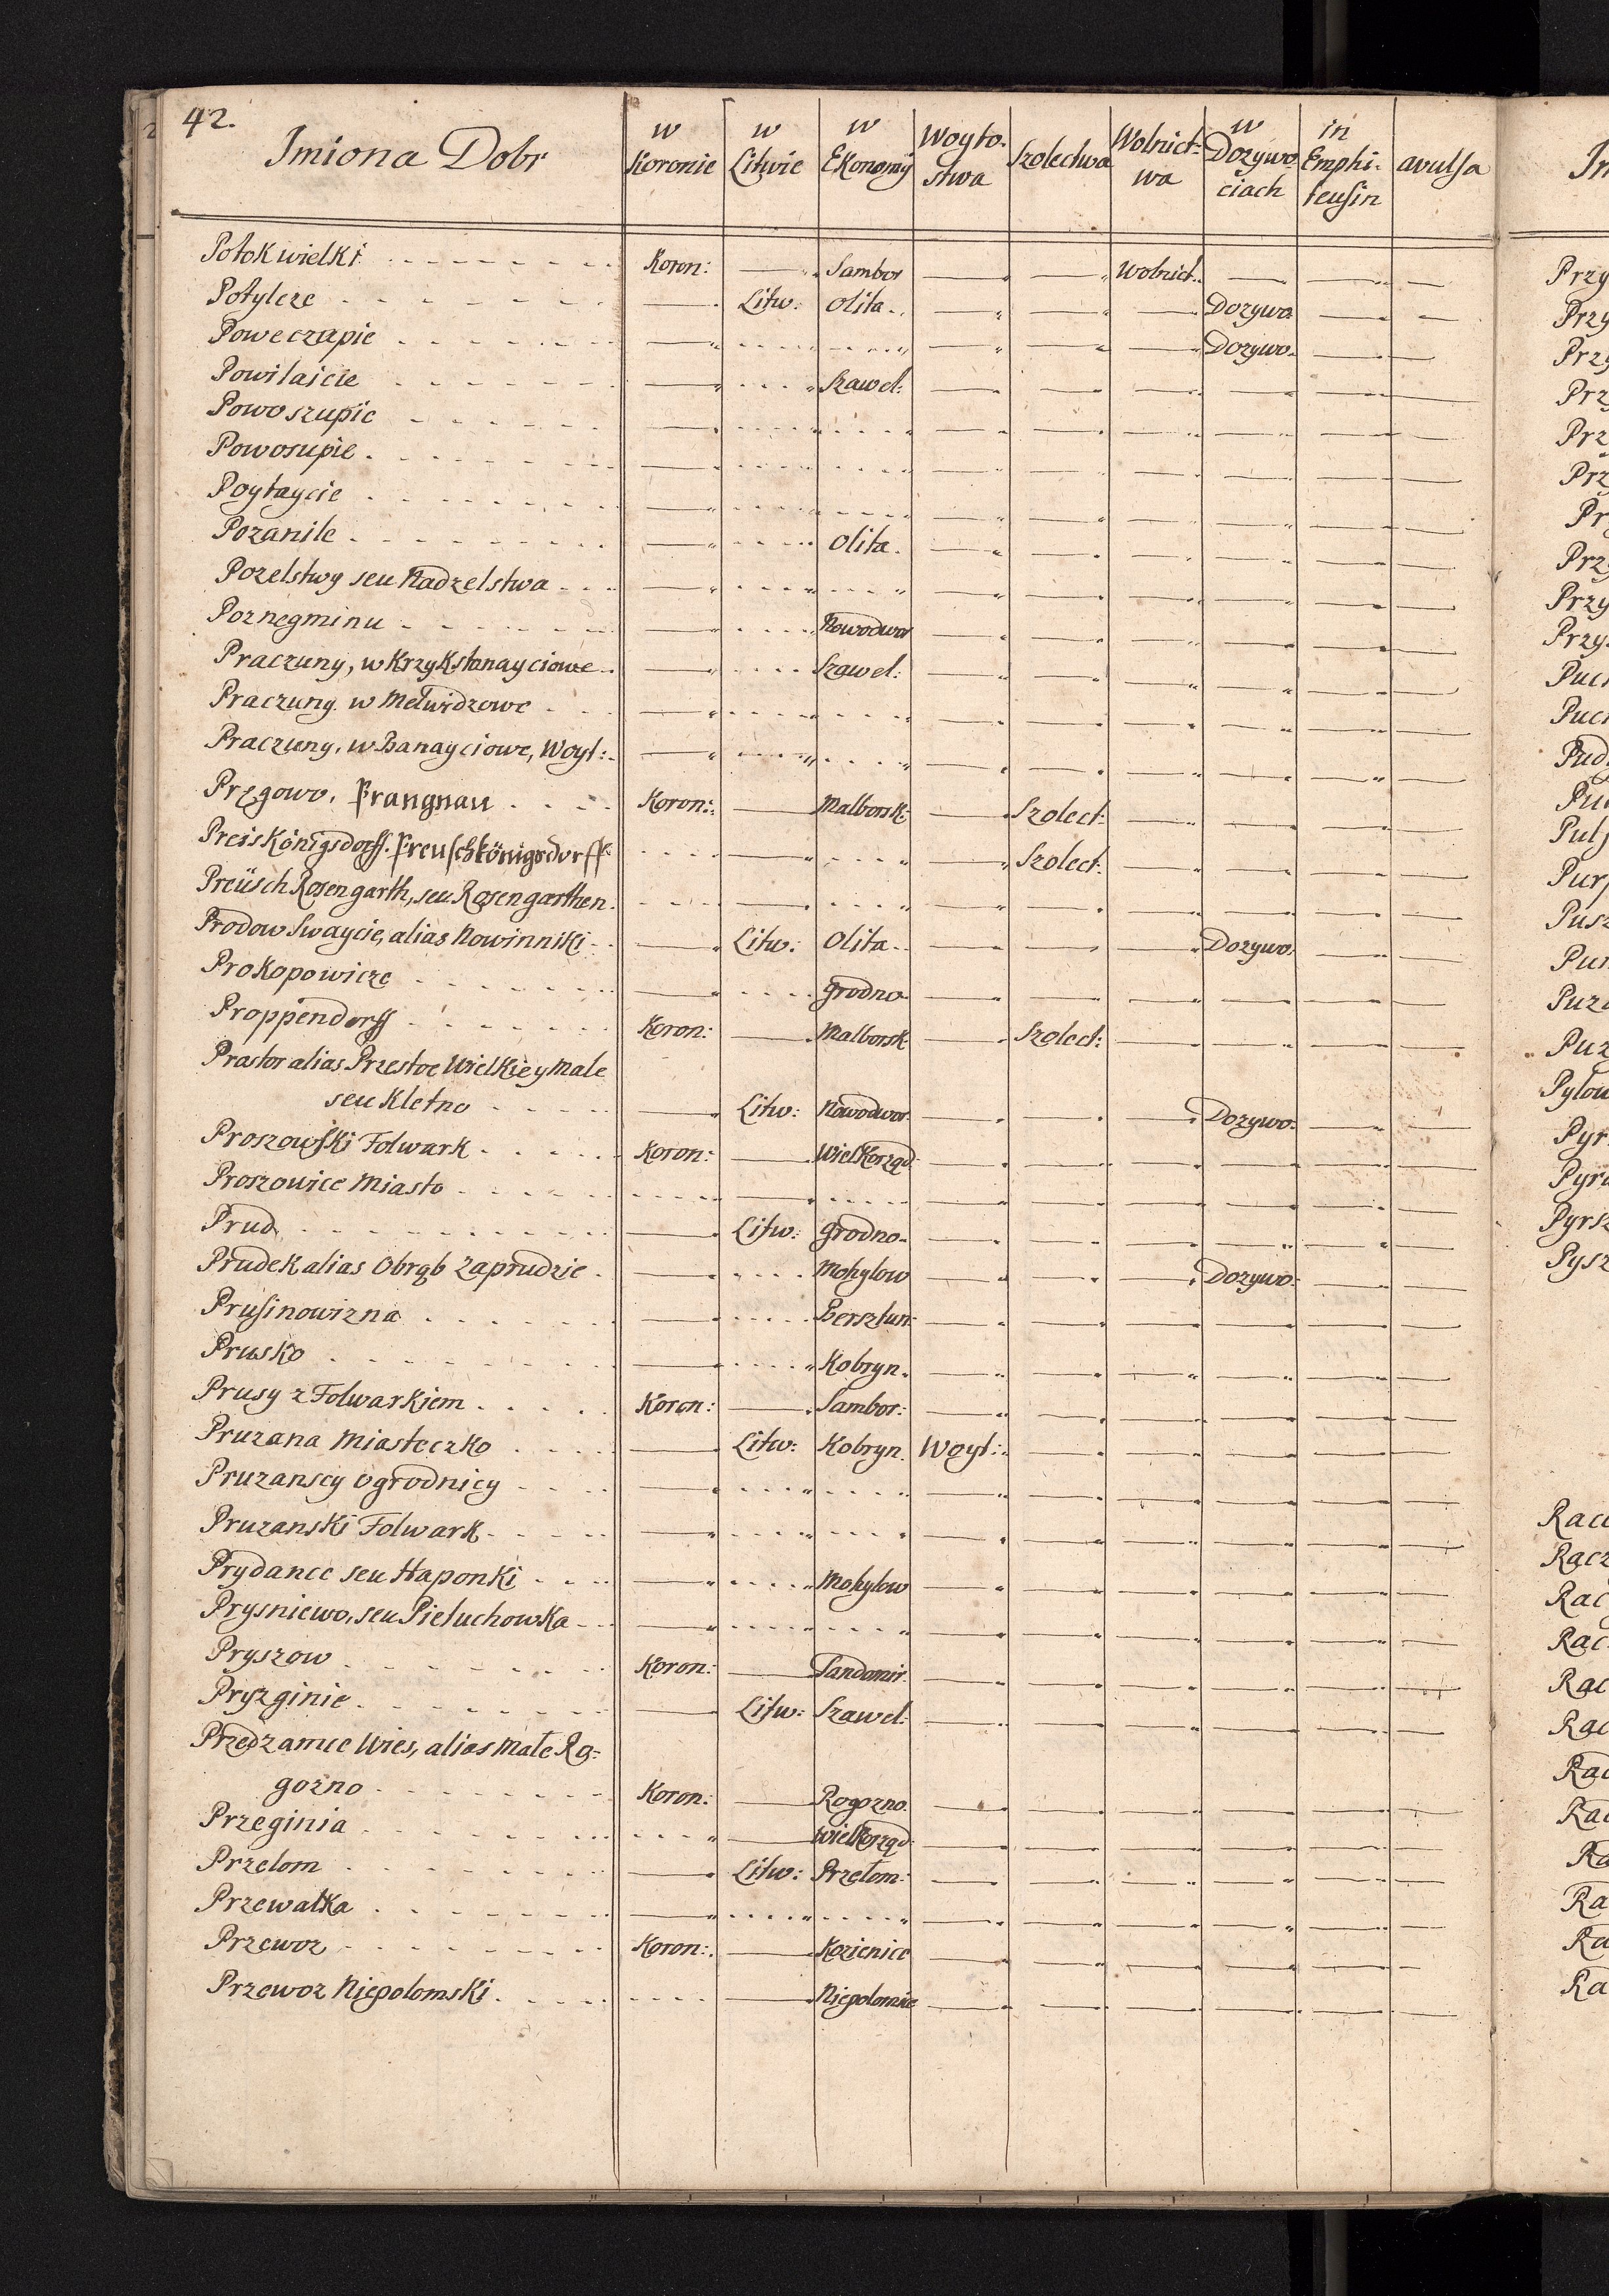 42.
Imiona Dobr | w Koronie | w Litwie | w Ekonomÿ | Woyto-stwa | Szolectwa | Wolnict-wa | w Dozywo ciach | in Emphi-teusin | avulsa
Potok wielki | Koron: | — | Sambor | — | — | Wolnict. | — | — | —
Potylcze | — | Litw: | Olita. | — | — | — | Dozywo. | — | —
Poweczapie | — | .... | .... | — | — | — | Dozywo. | — | —
Powilaicie | — | .... | Szawel: | — | — | — | — | — | —
Powoszupie | — | .... | .... | — | — | — | — | — | —
Powosupie. | — | .... | .... | — | — | — | — | — | —
Poytaycie | — | .... | .... | — | — | — | — | — | —
Pozanile | — | .... | Olita. | — | — | — | — | — | —
Pozelstwy seu Nadzelstwa | — | .... | .... | — | — | — | — | — | —
Poznegminu | — | .... | Nowodwor | — | — | — | — | — | —
Praczuny, w Krzyksztanayciowe | — | .... | Szawel: | — | — | — | — | — | —
Praczuny. w Metwidzowe | — | .... | .... | — | — | — | — | — | —
Praczuny, w Banayciowe, Woyt: | — | .... | .... | — | — | — | — | — | —
Pręgowo, Prangnau | Koron: | — | Malborsk: | — | Szolect: | — | — | — | —
Preis Königsdorff. Preuschkönigsdorff | .... | — | .... | — | Szolect: | — | — | — | —
Preüsch Rosengarth, seu Rosengarthen. | .... | — | .... | — | — | — | — | — | —
Prodow Swaycie, alias Nowinniki | — | Litw: | Olita. | — | — | — | Dozywo: | — | —
Prokopowicze | — | .... | Grodno. | — | — | — | — | — | —
Proppendorff | Koron: | — | Malborsk | — | Szolect: | — | — | — | —
Prastor alias Przestoe Wielkie y Male
seu Kletno | — | Litw: | Nowodwor. | — | — | — | Dozywo: | — | —
Proszowski Folwark | Koron: | — | Wielkorząd: | — | — | — | — | — | —
Proszowice Miasto | .... | — | .... | — | — | — | — | — | —
Prud | — | Litw: | Grodno. | — | — | — | — | — | —
Prudek alias Obrąb Zaprudzie | — | .... | Mohylow | — | — | — | Dozywo: | — | —
Prusinowizna | — | .... | Bersztun: | — | — | — | — | — | —
Prusko | — | .... | Kobryn. | — | — | — | — | — | —
Prusy z Folwarkiem | Koron: | — | Sambor: | — | — | — | — | — | —
Pruzana Miasteczko | — | Litw: | Kobryn. | Woyt: | — | — | — | — | —
Pruzanscy Ogrodnicy | — | .... | .... | — | — | — | — | — | —
Pruzanski Folwark | — | .... | .... | — | — | — | — | — | —
Prydance seu Haponki | — | .... | Mohylow | — | — | — | — | — | —
Prysniewo, seu Pieluchowka | — | .... | .... | — | — | — | — | — | —
Pryszow | Koron: | — | Sandomir. | — | — | — | — | — | —
Pryzginie | — | Litw: | Szawel: | — | — | — | — | — | —
Przedzamcze Wies, alias Małe Ro=
gozno | Koron: | — | Rogozno. | — | — | — | — | — | —
Przeginia | .... | — | Wielkorząd: | — | — | — | — | — | —
Przelom | — | Litw: | Przełom: | — | — | — | — | — | —
Przewałka | — | .... | .... | — | — | — | — | — | —
Przewoz | Koron: | — | Kozienice | — | — | — | — | — | —
Przewoz Niepolomski | .... | — | Niepolomice | — | — | — | — | — | —